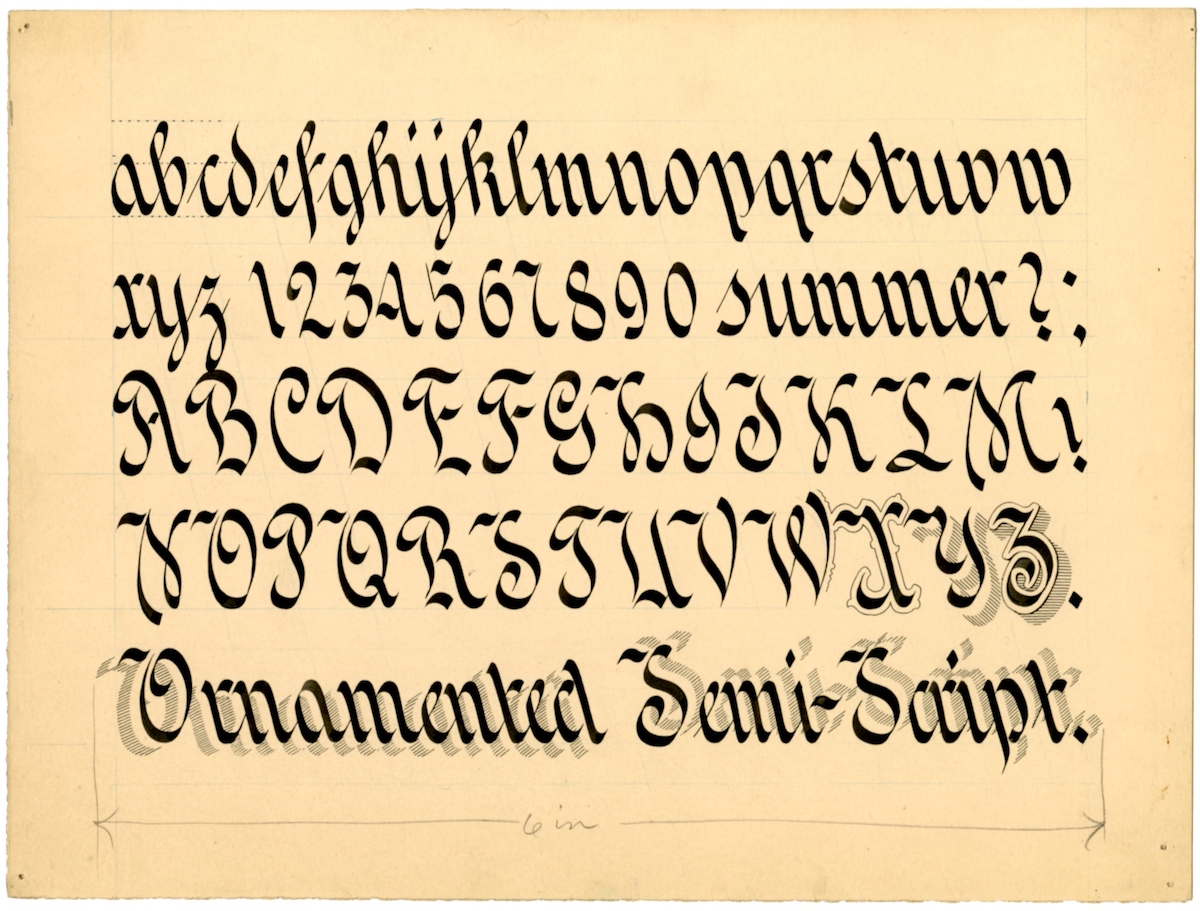 abcdefghijklmnopqrstuvw
xyz 1234567890 summer?;
ABCDEFGHIJKLM!
NOPQRSTUVWXYZ.
Ornamented Semi-Script.
6 in